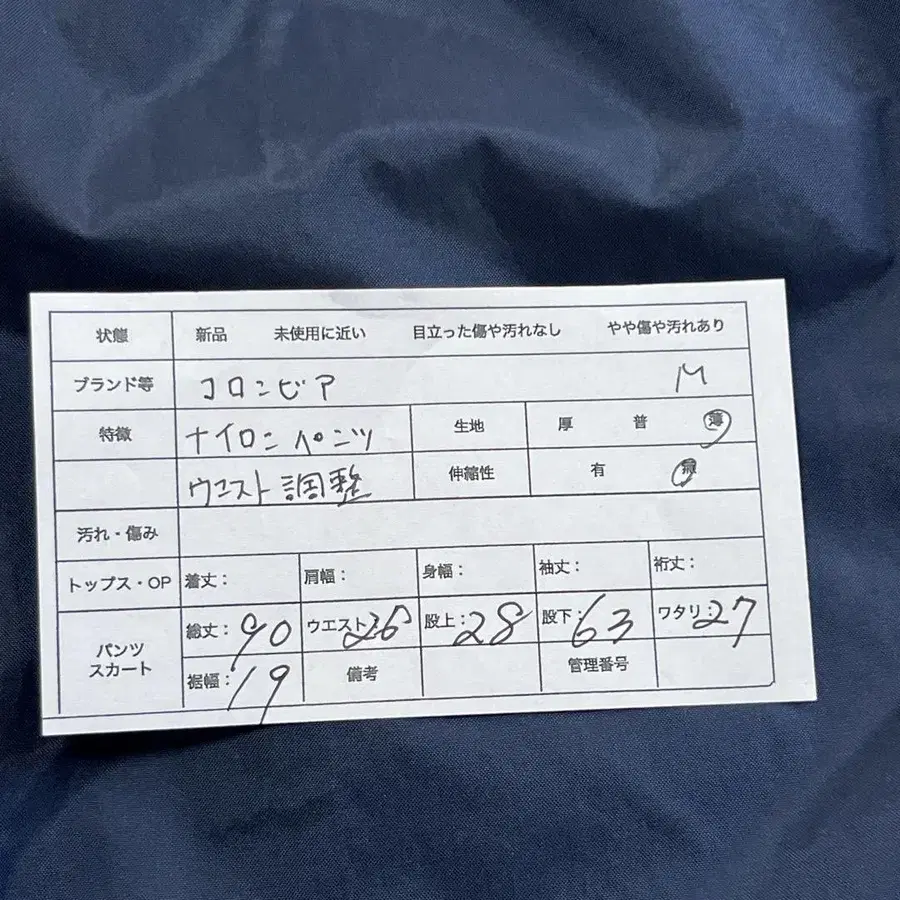 状態 新品 未使用に近い 目立った傷や汚れなし やや傷や汚れあり
ブランド等 コロンビア M
特徴 ナイロンパンツ 生地 厚 普 薄
ウエスト調整 伸縮性 有 無
汚れ・傷み
トップス・OP 着丈: 肩幅: 身幅: 袖丈: 裄丈:
パンツ スカート 総丈:90 ウエスト 股上:28 股下:63 ワタリ:27
裾幅:19 備考 管理番号